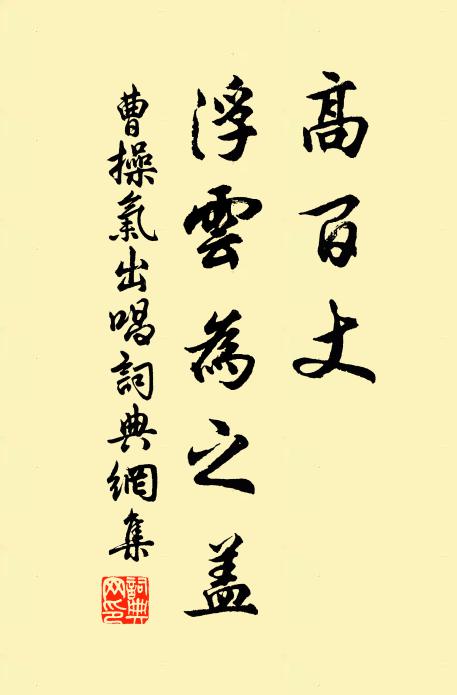 高百丈
浮雲為之盖
曹操氣出唱詞典網集
詞典网印